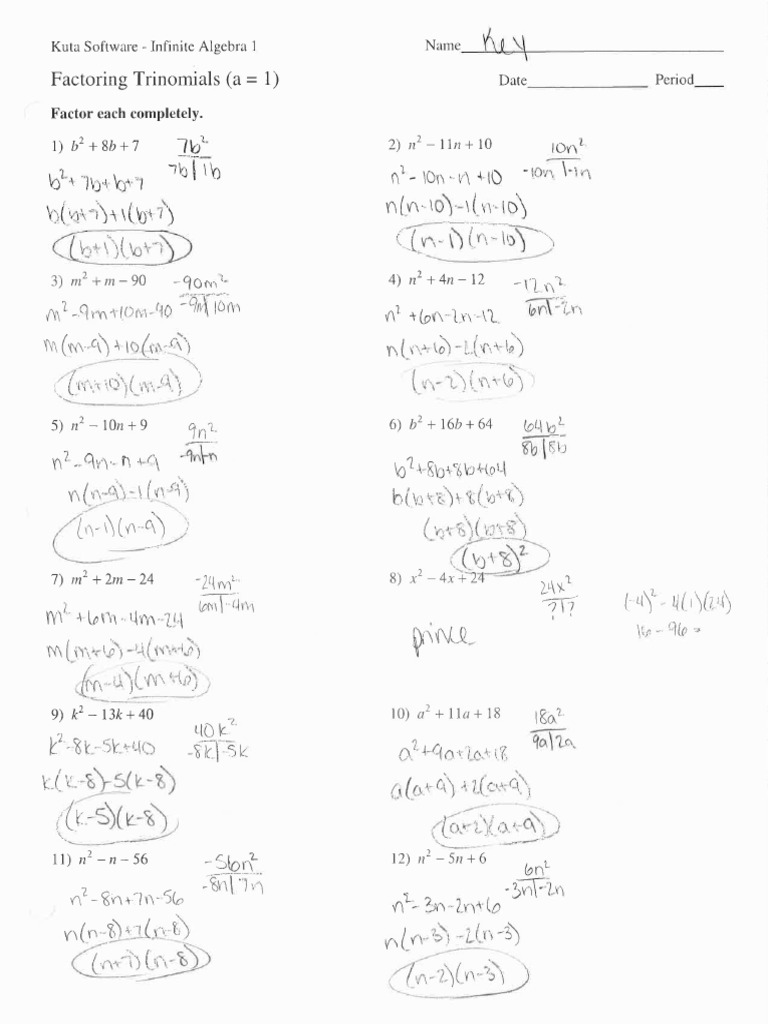 Kuta Software - Infinite Algebra 1
Name Key
Factoring Trinomials (a = 1)
Date Period
Factor each completely.
1) b² + 8b + 7
7b²
7b | 1b
b² + 7b + b + 7
b(b+7)+1(b+7)
(b+1)(b+7)
2) n² − 11n + 10
10n²
-10n | -1n
n² - 10n - n + 10
n(n-10)-1(n-10)
(n-1)(n-10)
3) m² + m − 90
-90m²
-9m | 10m
m² - 9m + 10m - 90
m(m-9)+10(m-9)
(m+10)(m-9)
4) n² + 4n − 12
-12n²
6n | -2n
n² + 6n - 2n - 12
n(n+6)-2(n+6)
(n-2)(n+6)
5) n² − 10n + 9
9n²
-9n | -n
n² - 9n - n + 9
n(n-9)-1(n-9)
(n-1)(n-9)
6) b² + 16b + 64
64b²
8b | 8b
b² + 8b + 8b + 64
b(b+8)+8(b+8)
(b+8)(b+8)
(b+8)²
7) m² + 2m − 24
-24m²
6m | -4m
m² + 6m - 4m - 24
m(m+6)-4(m+6)
(m-4)(m+6)
8) x² − 4x + 24
24x²
? | ?
(-4)² - 4(1)(24)
16 - 96 =
prince
9) k² − 13k + 40
40k²
-8k | -5k
k² - 8k - 5k + 40
k(k-8)-5(k-8)
(k-5)(k-8)
10) a² + 11a + 18
18a²
9a | 2a
a² + 9a + 2a + 18
a(a+9)+2(a+9)
(a+2)(a+9)
11) n² − n − 56
-56n²
-8n | 7n
n² - 8n + 7n - 56
n(n-8)+7(n-8)
(n+7)(n-8)
12) n² − 5n + 6
6n²
-3n | -2n
n² - 3n - 2n + 6
n(n-3)-2(n-3)
(n-2)(n-3)